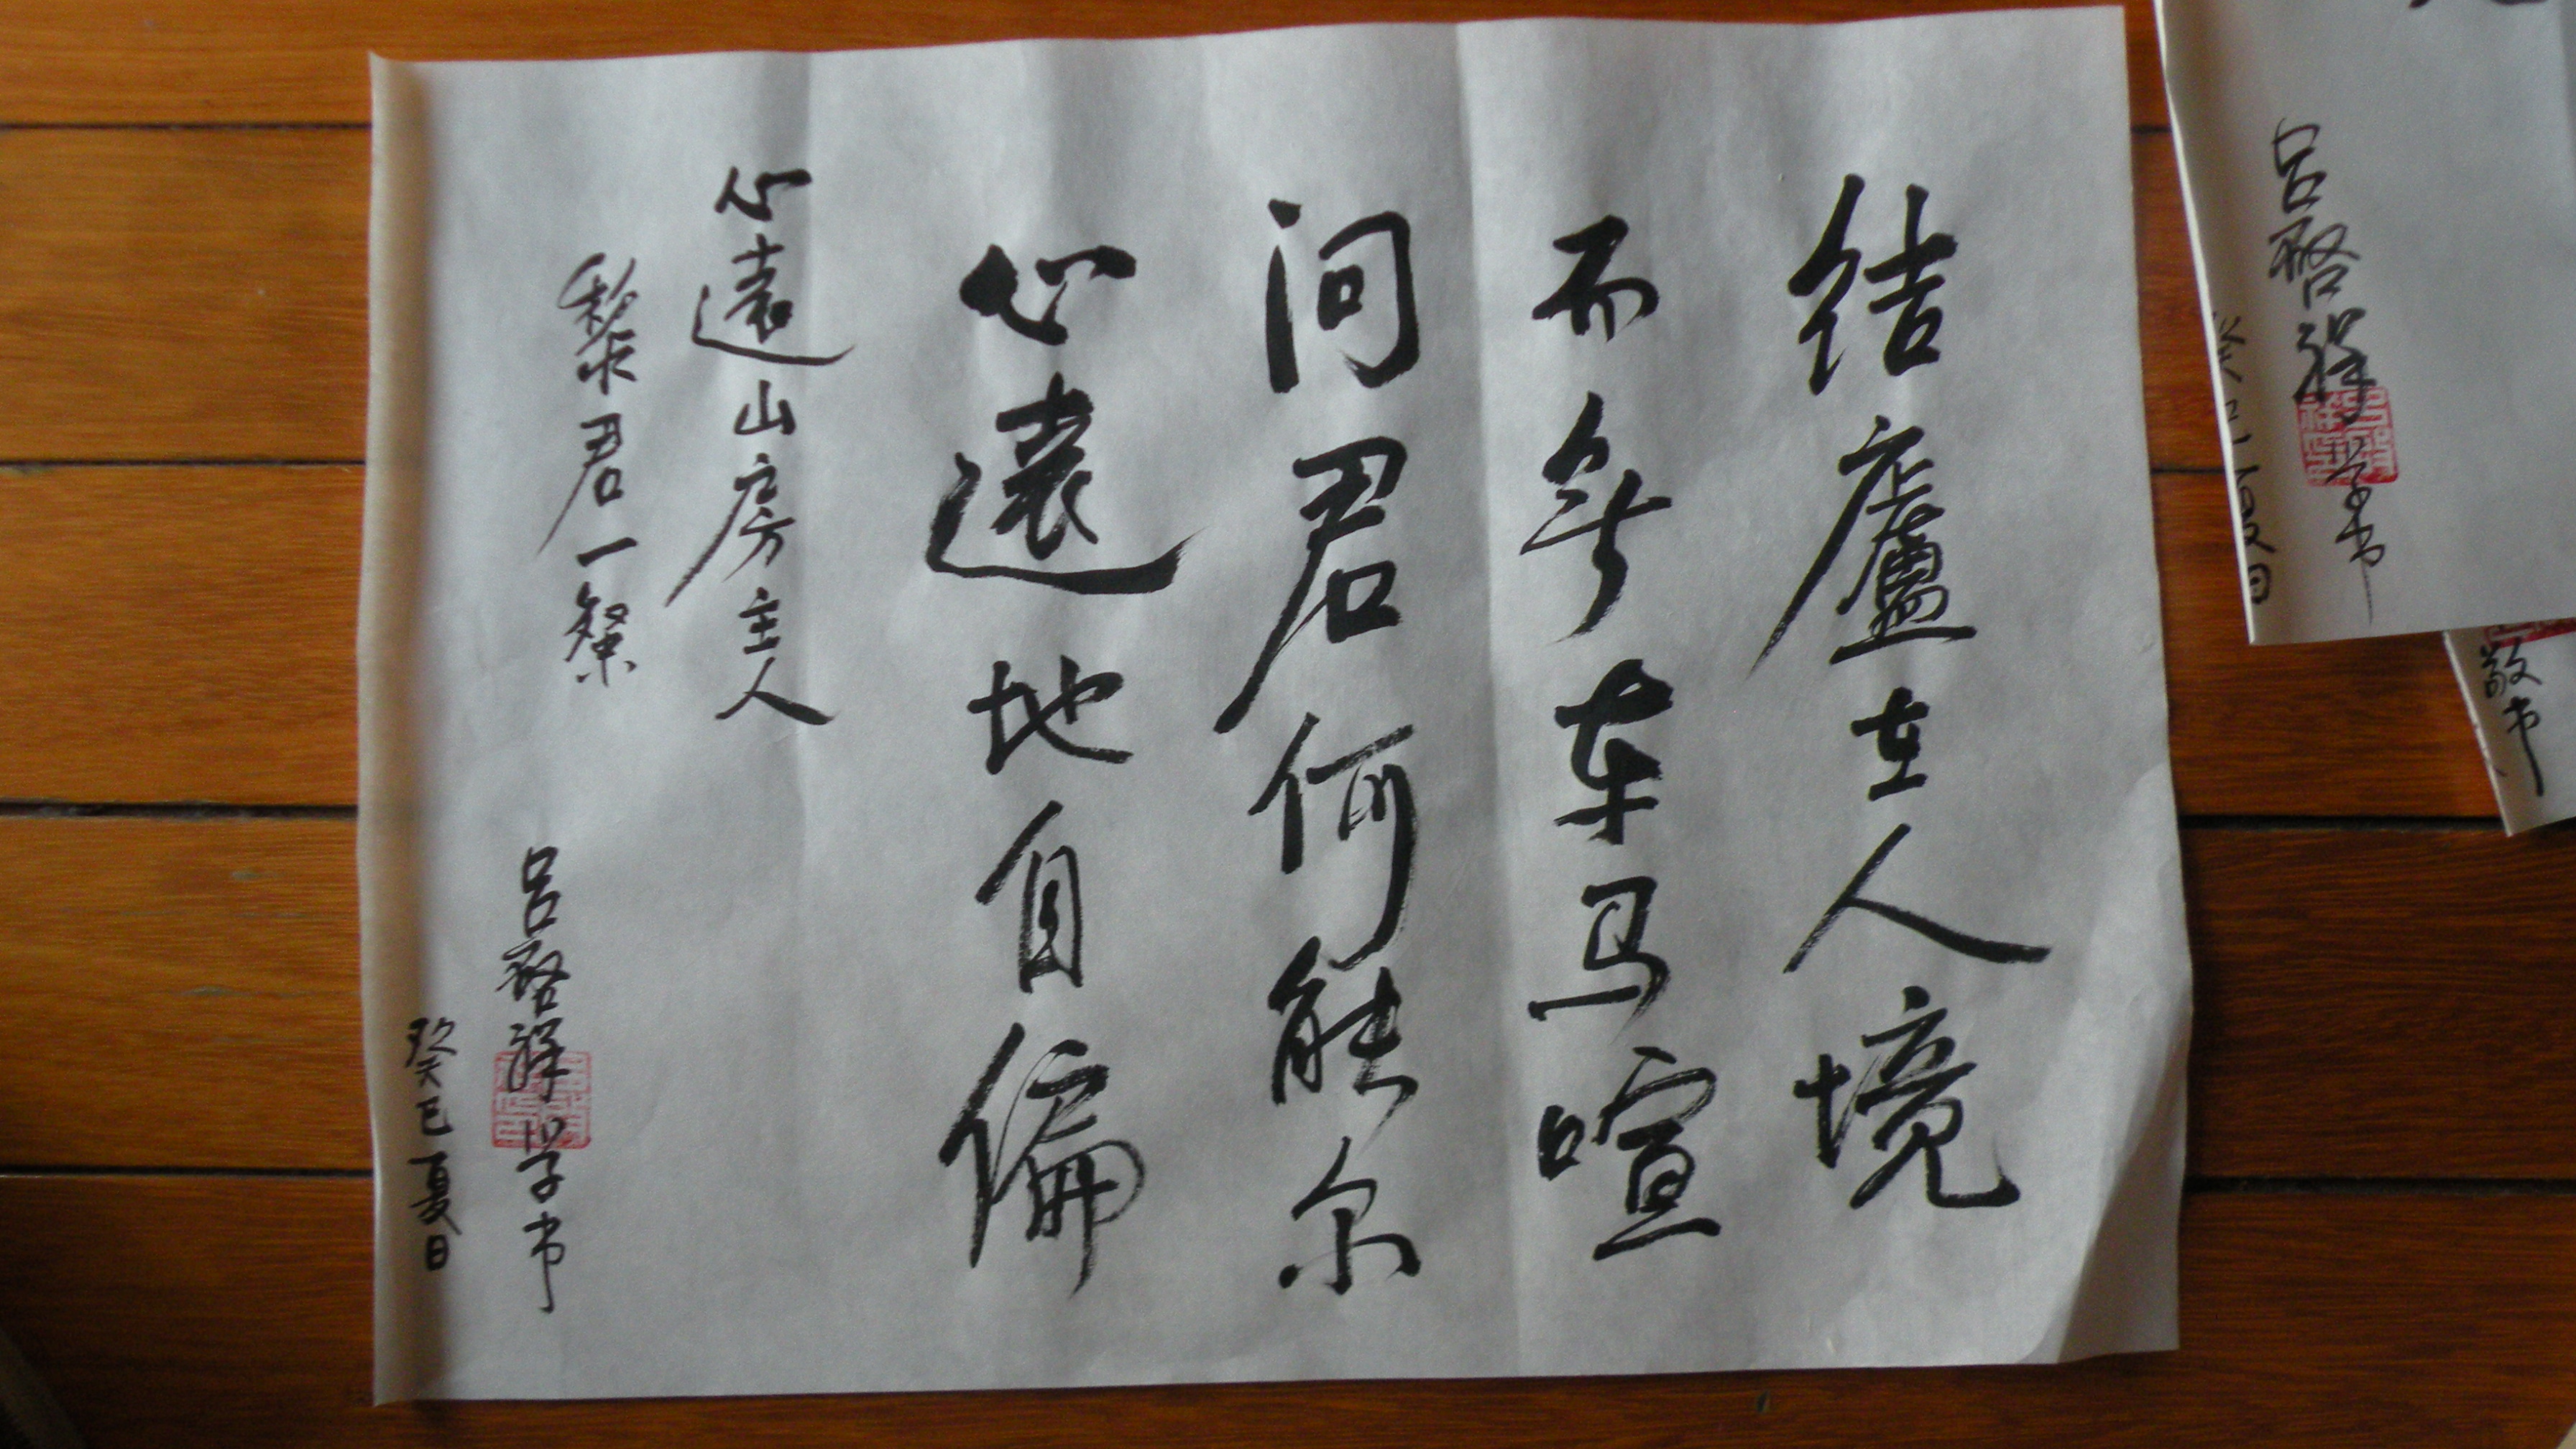 结廬在人境
而無车马喧
问君何能尔
心遠地自偏
心遠山房主人
黎君一粲
吕啓祥学书
癸巳夏日
吕啓祥学书
癸巳夏日
敬书